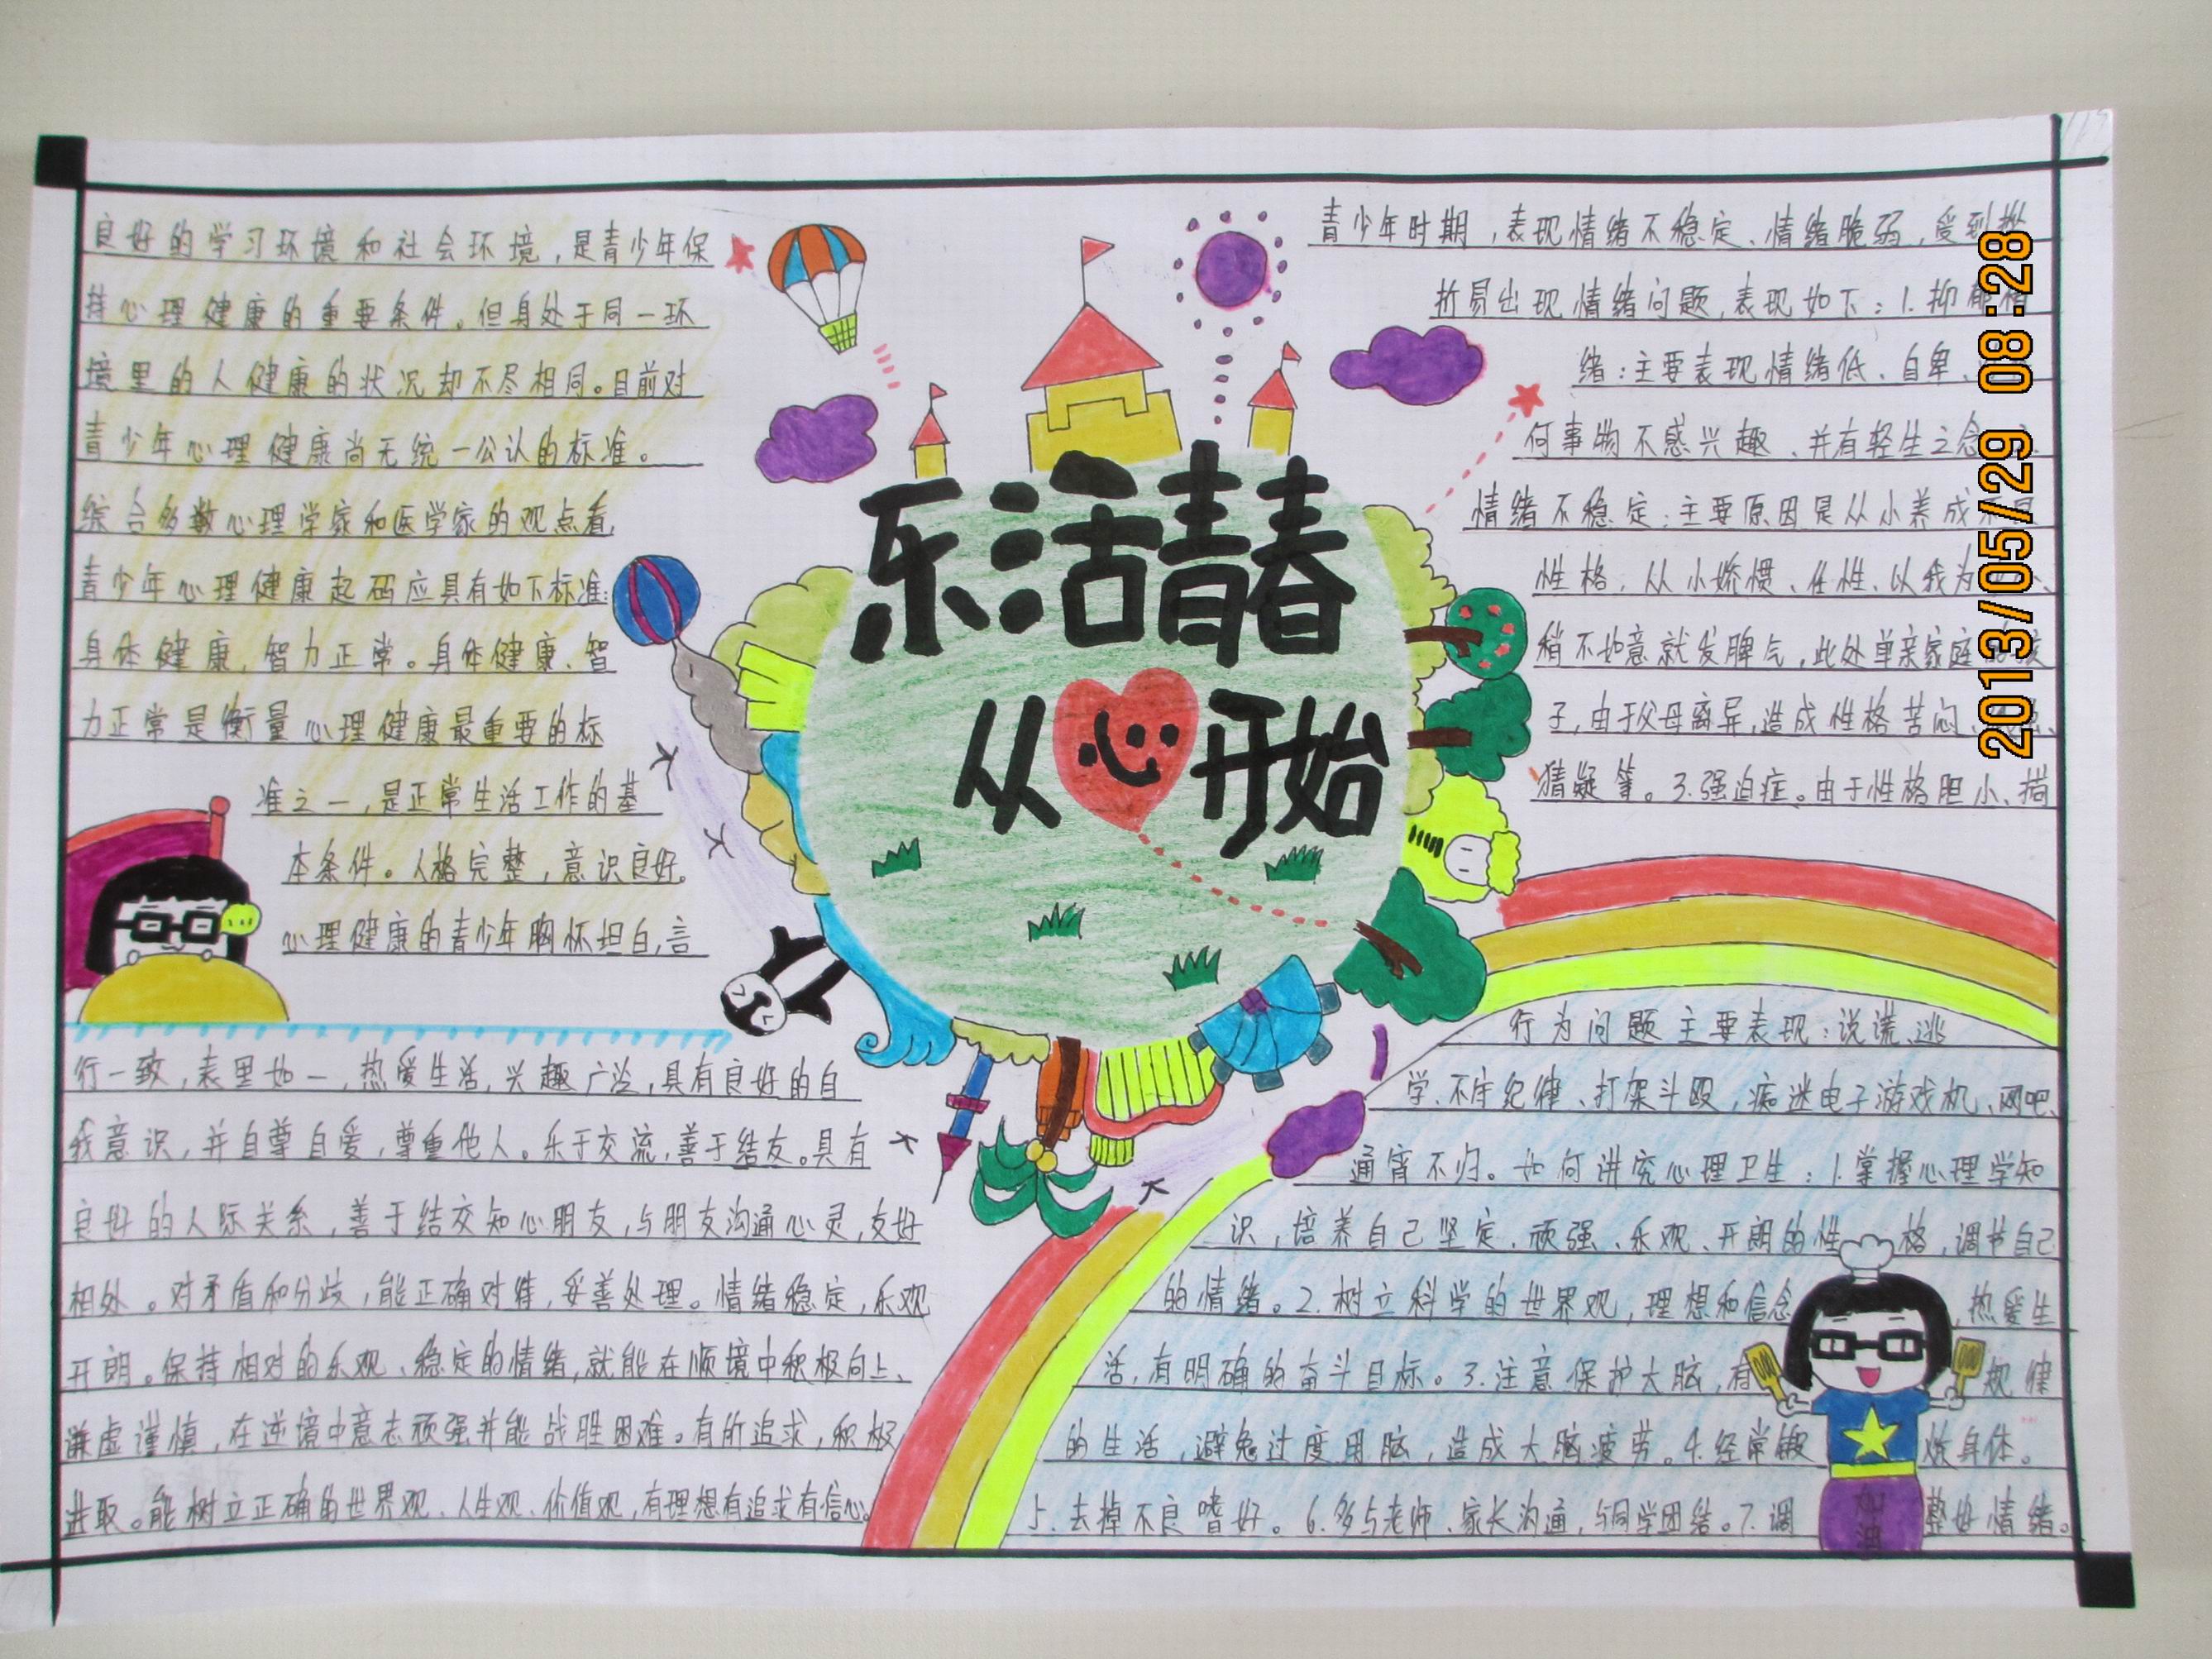 乐活青春
从心开始
良好的学习环境和社会环境,是青少年保
持心理健康的重要条件。但身处于同一环
境里的人健康的状况却不尽相同。目前对
青少年心理健康尚无统一公认的标准。
综合多数心理学家和医学家的观点看
青少年心理健康起码应具有如下标准:
身体健康,智力正常。身体健康、智
力正常是衡量心理健康最重要的标
准之一,是正常生活工作的基
本条件。人格完整,意识良好。
心理健康的青少年胸怀坦白,言
行一致,表里如一,热爱生活,兴趣广泛,具有良好的自
我意识,并自尊自爱,尊重他人。乐于交流,善于结友。具有
良好的人际关系,善于结交知心朋友,与朋友沟通心灵,友好
相处。对矛盾和分歧,能正确对待,妥善处理。情绪稳定,乐观
开朗。保持相对的乐观、稳定的情绪,就能在顺境中积极向上、
谦虚谨慎,在逆境中意志顽强并能战胜困难。有所追求,积极
进取。能树立正确的世界观、人生观、价值观,有理想有追求有信心。
青少年时期,表现情绪不稳定、情绪脆弱,受到
折易出现情绪问题,表现如下:1.抑郁情
绪:主要表现情绪低、自卑、
何事物不感兴趣、并有轻生之念
情绪不稳定:主要原因是从小养成不良
性格,从小娇惯、任性、以我为
稍不如意就发脾气,此处单亲家庭的孩
子,由于父母离异,造成性格苦闷、
猜疑等。3.强迫症。由于性格胆小、
行为问题主要表现:说谎、逃
学、不守纪律、打架斗殴,痴迷电子游戏机、网吧、
通宵不归。如何讲究心理卫生:1.掌握心理学知
识,培养自己坚定、顽强、乐观、开朗的性格,调节自己
的情绪。2.树立科学的世界观,理想和信念,热爱生
活,有明确的奋斗目标。3.注意保护大脑,有规律
的生活,避免过度用脑,造成大脑疲劳。4.经常锻炼身体。
5.去掉不良嗜好。6.多与老师、家长沟通,与同学团结。7.调整好情绪。
加油
2013/05/29 08:28